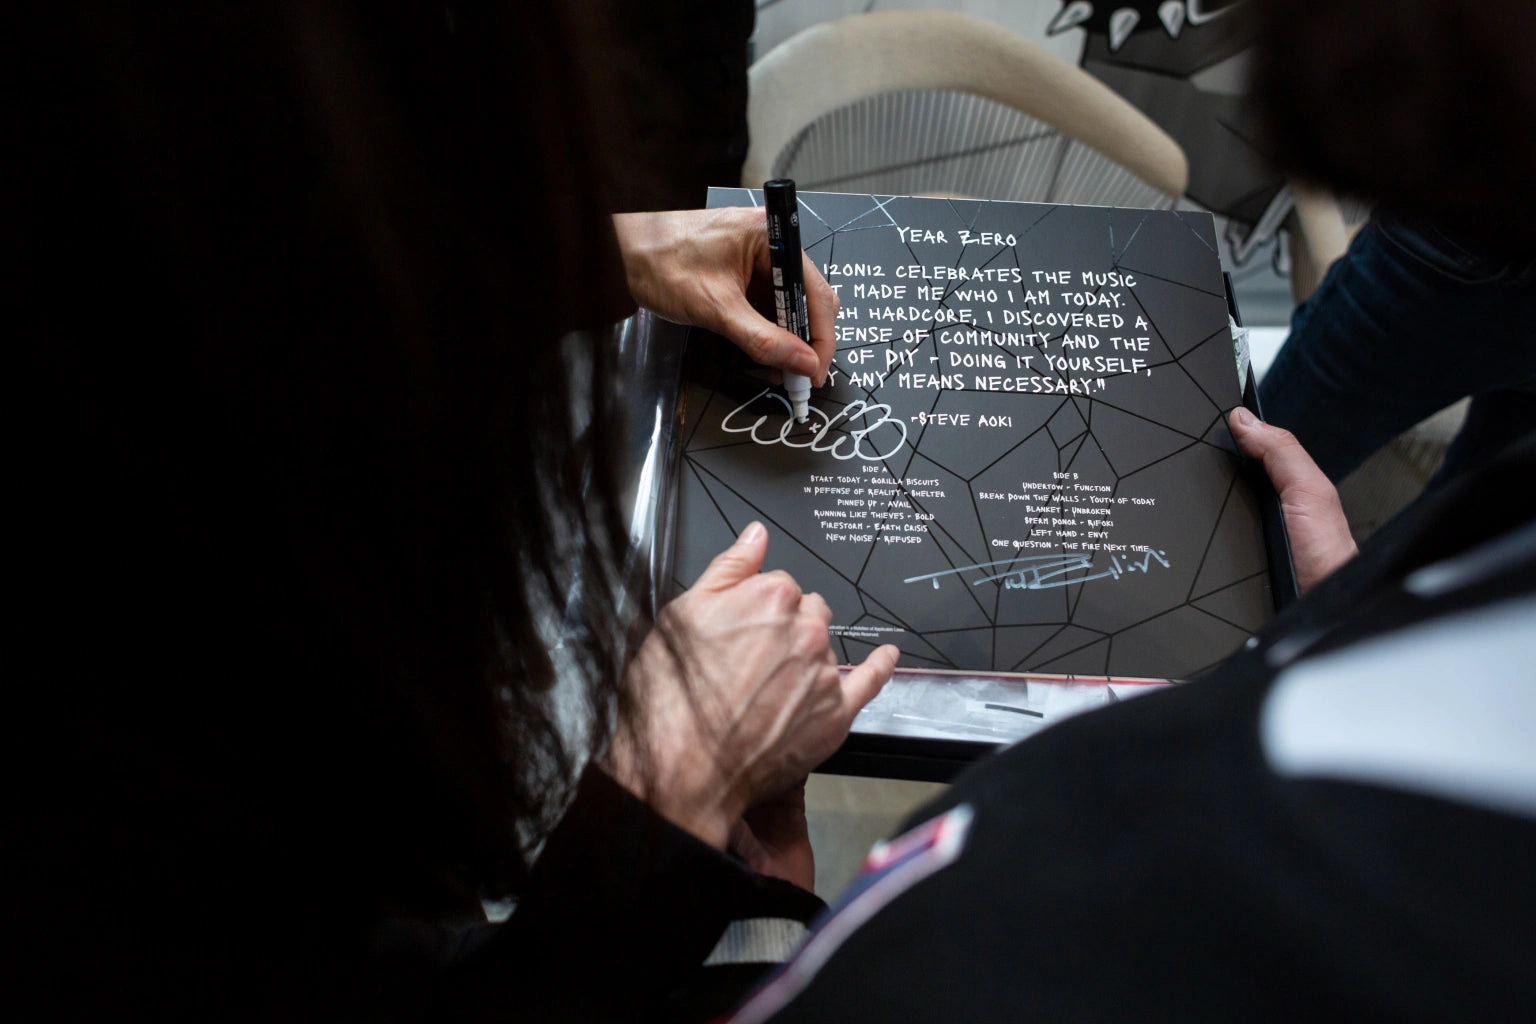 YEAR ZERO
12ON12 CELEBRATES THE MUSIC
MADE ME WHO I AM TODAY.
HARDCORE, I DISCOVERED A
SENSE OF COMMUNITY AND THE
OF DIY - DOING IT YOURSELF,
ANY MEANS NECESSARY."
-STEVE AOKI
SIDE A
START TODAY - GORILLA BISCUITS
IN DEFENSE OF REALITY - SHELTER
PINNED UP - AVAIL
RUNNING LIKE THIEVES - BOLD
FIRESTORM - EARTH CRISIS
NEW NOISE - REFUSED
SIDE B
UNDERTOW - FUNCTION
BREAK DOWN THE WALLS - YOUTH OF TODAY
BLANKET - UNBROKEN
SPERM DONOR - RIFOKI
LEFT HAND - ENVY
ONE QUESTION - THE FIRE NEXT TIME
is a violation of Applicable Laws.
Ltd. All Rights Reserved.